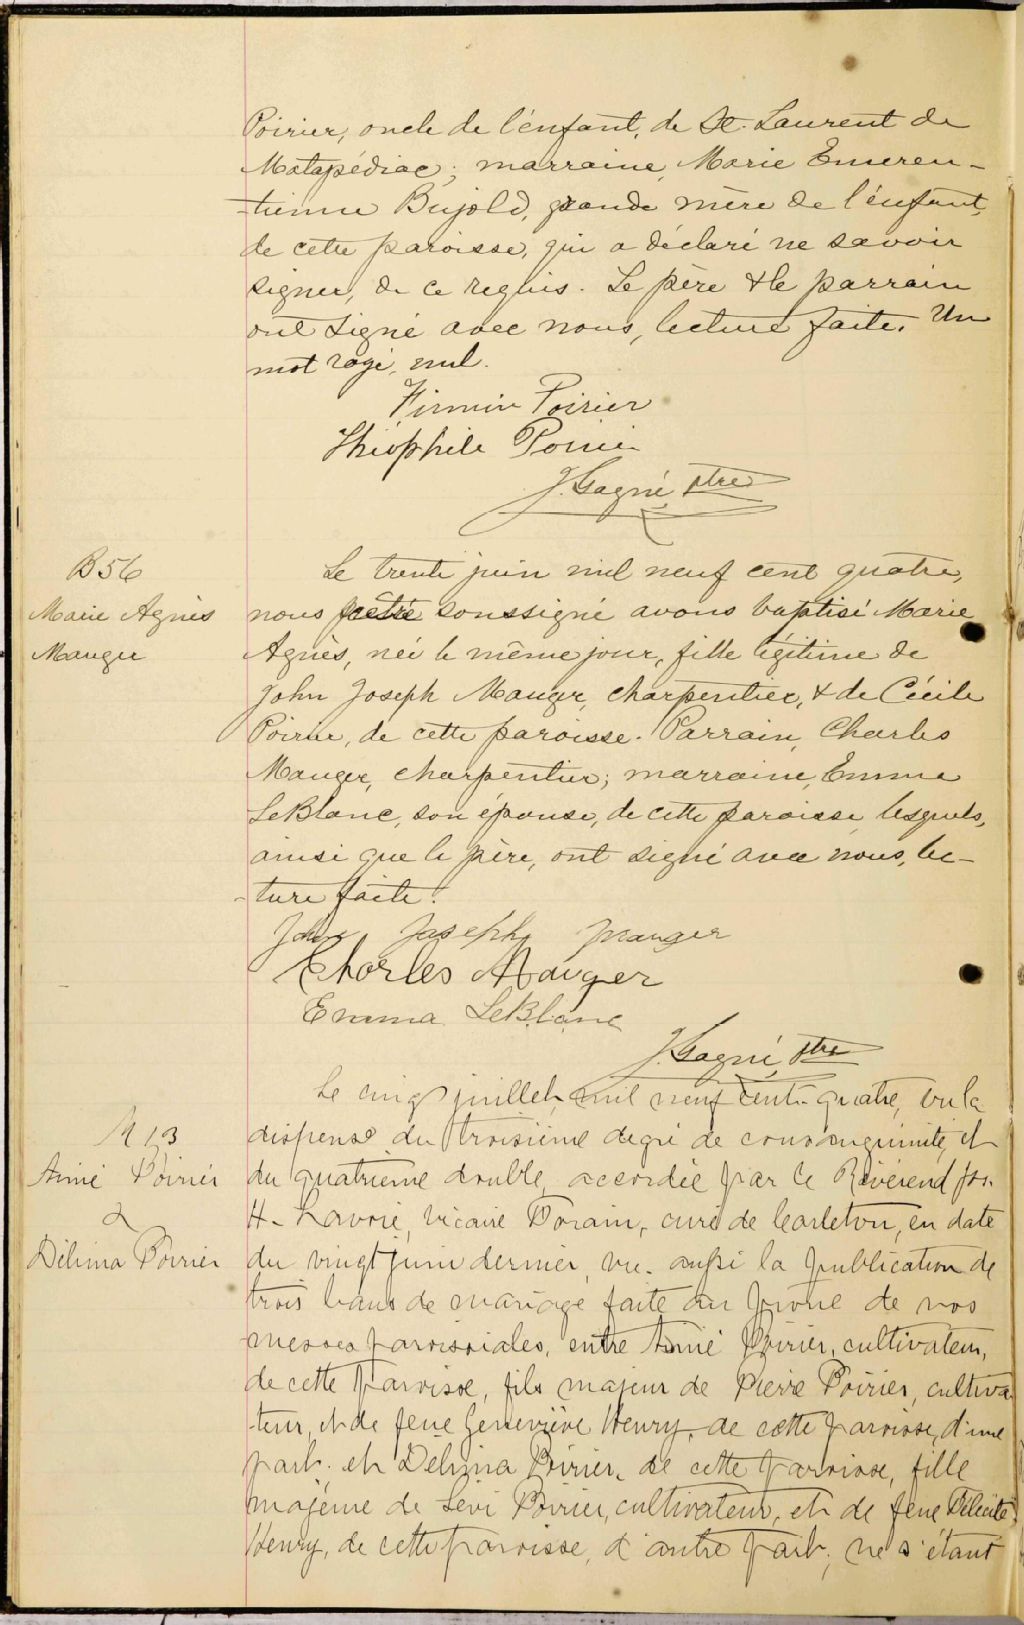 Poirier, oncle de l'enfant, de St. Laurent de
Matapédiac; marraine, Marie Emeren-
-tienne Bujold, grande mère de l'enfant,
de cette paroisse, qui a déclaré ne savoir
signer, de ce requis. Le père & le parrain
ont signé avec nous, lecture faite. Un
mot rayé, nul.
Firmin Poirier
Théophile Poirier
J. Gagné, ptre
B 56
Marie Agnès
Mauger
Le trente juin mil neuf cent quatre,
nous prêtre soussigné avons baptisé Marie
Agnès, née le même jour, fille légitime de
John Joseph Mauger, charpentier, & de Cécile
Poirier, de cette paroisse. Parrain, Charles
Mauger, charpentier; marraine, Emma
LeBlanc, son épouse, de cette paroisse, lesquels,
ainsi que le père, ont signé avec nous, lec-
-ture faite.
John Joseph Mauger
Charles Mauger
Emma LeBlanc
J. Gagné, ptre
M 13
Aimé Poirier
&
Délima Poirier
Le cinq juillet, mil neuf cent-quatre, vu la
dispense du troisième degré de consanguinité, et
du quatrième double, accordée par le Révérend Jos.
H. Lavoie, vicaire Forain, curé de Carleton, en date
du vingt juin dernier, vu aussi la publication de
trois bans de mariage faite au prône de nos
messes paroissiales, entre Aimé Poirier, cultivateur,
de cette paroisse, fils majeur de Pierre Poirier, cultiva-
-teur, et de feue Geneviève Henry, de cette paroisse, d'une
part; et Délima Poirier, de cette paroisse, fille
majeure de Lévi Poirier, cultivateur, et de feue Félicité
Henry, de cette paroisse, d'autre part; ne s'étant